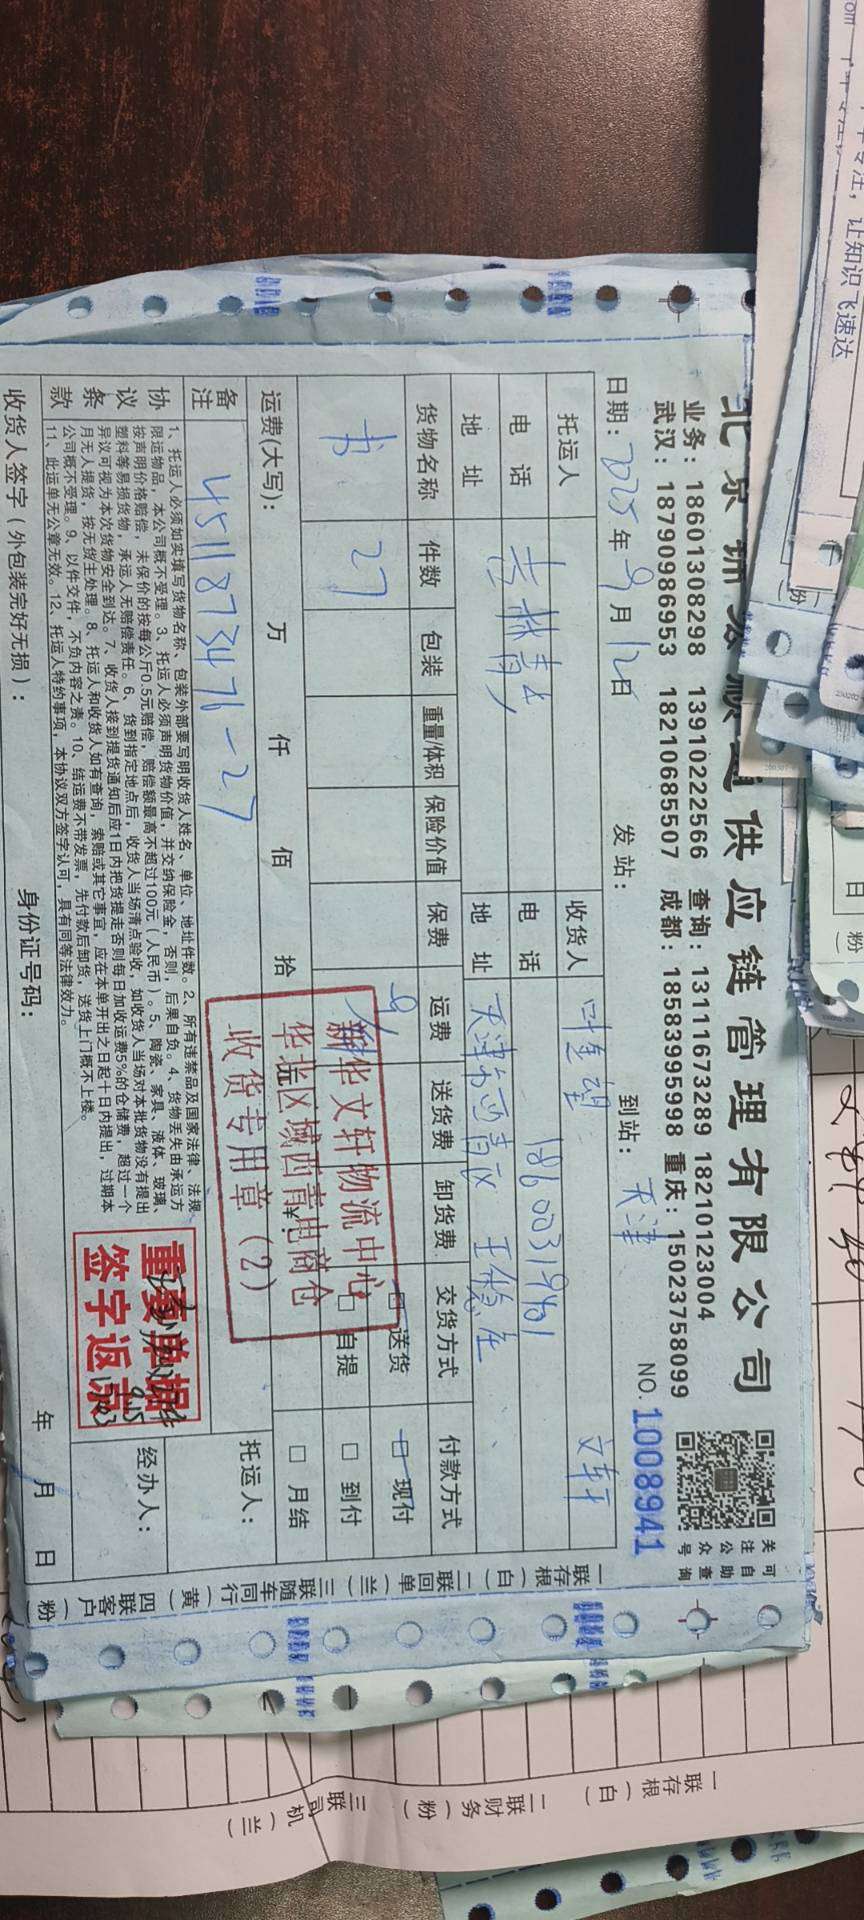 供应链管理有限公司
业务：18601308298 13910222566 查询：13111673289 18210123004
武汉：18790986953 18210685507 成都：18583995998 重庆：15023758099
可自助查询
关注公众号
日期：2025年9月12日 发站： 到站：天津 NO.1008941
托运人 收货人 叶连望 文轩
电话 电话 18600319401
地址 地址 天津市西青区王稳庄
货物名称 件数 包装 重量/体积 保险价值 保费 运费 送货费 卸货费 交货方式 付款方式
书 27 送货 自提 现付 到付 月结
运费(大写)： 万 仟 佰 拾 ¥：
备注 4511873476-27
托运人：
经办人：
新华文轩物流中心
华北区域西青电商仓
收货专用章（2）
重要单据
签字返京
协议条款
1、托运人必须如实填写货物名称、包装外部要写明收货人姓名、单位、地址件数。2、所有违禁品及国家法律、法规
限运物品，本公司概不受理。3、托运人必须声明货物价值，并交纳保险金，否则，后果自负。4、货物丢失由承运方
按声明价格赔偿，未保价的按每公斤0.5元赔偿，赔偿额最高不超过100元（人民币）。5、陶瓷、家具、液体、玻璃、
塑料等易损货物，承运人无赔偿责任。6、货到指定地点后，收货人当场清点验收，如收货人当场对本批货物没有提出
异议可视为本次货物安全到达。7、收货人接到提货通知后应1日内把货提走否则每日加收运费5%的仓储费，超过一个
月无人提货，按无货主处理。8、托运人和收货人如有查询，索赔或其它事宜，应在本单开出之日起十日内提出，过期本
公司概不受理。9、以件交件，不负内容之责。10、结运费不带发票，先付款后卸货，送货上门概不上楼。
11、此运单无公章无效。12、托运人特约事项，本协议双方签字认可，具有同等法律效力。
收货人签字（外包装完好无损）： 身份证号码： 年 月 日
一联存根（白）二联回单（兰）三联随车同行（黄）四联客户（粉）
一联存根（白） 二联财务（粉） 三联司机（兰）
让知识飞速达